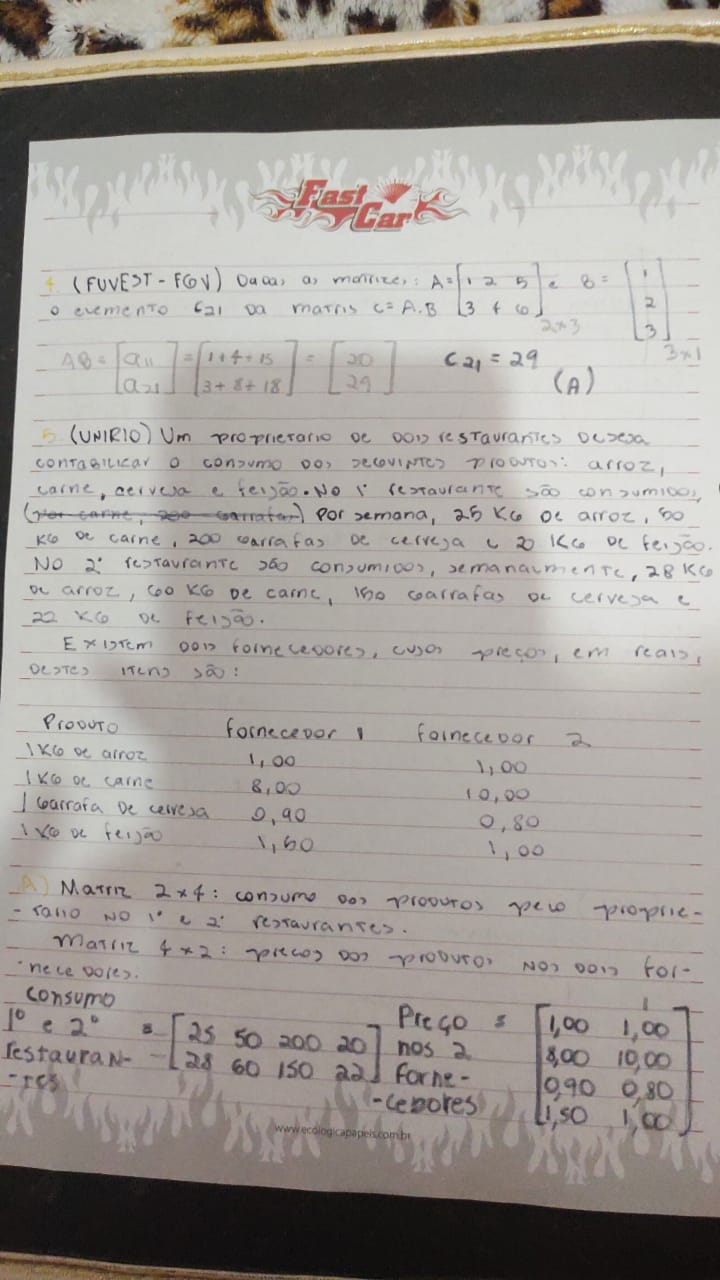 Fast Car
4 (FUVEST - FGV) Dadas as matrizes: A= [1 2 5 e B= [1
o elemento C21 da matriz C= A.B [3 4 6] 2x3 2
3] 3x1
AB = [a11 = [1+4+15 = [20 C21 = 29
a21] 3+8+18] 29] (A)
5 (UNIRIO) Um proprietario de dois restaurantes deseja
contabilizar o consumo dos seguintes produtos: arroz,
carne, cerveja e feijão. No 1º restaurante são consumidos,
(por carne, 200 garrafas) por semana, 25 KG de arroz, 50
KG de carne, 200 garrafas de cerveja e 20 KG de feijão.
No 2º restaurante são consumidos, semanalmente, 28 KG
de arroz, 60 KG de carne, 150 garrafas de cerveja e
22 KG de feijão.
Existem dois fornecedores, cujos preços, em reais,
destes itens são:
Produto fornecedor 1 fornecedor 2
1 KG de arroz 1,00 1,00
1 KG de carne 8,00 10,00
1 garrafa de cerveja 0,90 0,80
1 KG de feijão 1,50 1,00
A) Matriz 2x4: consumo dos produtos pelo proprie-
-tario no 1º e 2º restaurantes.
Matriz 4x2: preços dos produtos nos dois for-
necedores.
Consumo
1º e 2º = [25 50 200 20] Preço = [1,00 1,00
restauran- [28 60 150 22] nos 2 8,00 10,00
-tes forne- 0,90 0,80
-cedores 1,50 1,00]
www.ecologicapapeis.com.br